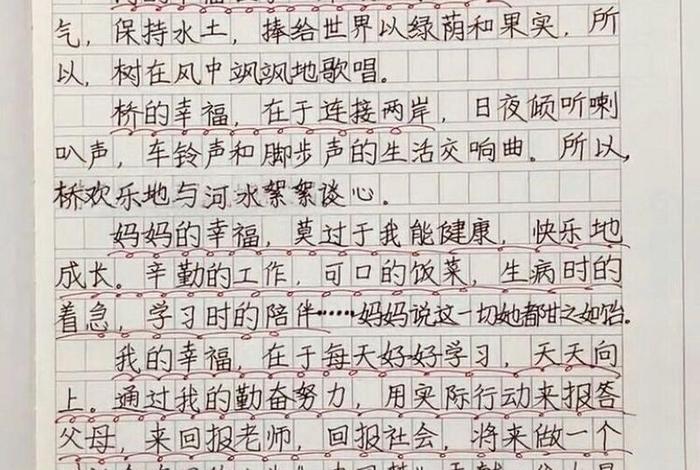 气，保持水土，捧给世界以绿荫和果实，所
以，树在风中飒飒地歌唱。
桥的幸福，在于连接两岸，日夜倾听喇
叭声，车铃声和脚步声的生活交响曲。所以，
桥欢乐地与河水絮絮谈心。
妈妈的幸福，莫过于我能健康，快乐地
成长。辛勤的工作，可口的饭菜，生病时的
着急，学习时的陪伴……妈妈说这一切她都甘之如饴。
我的幸福，在于每天好好学习，天天向
上。通过我的勤奋努力，用实际行动来报答
父母，来回报老师，回报社会，将来做一个